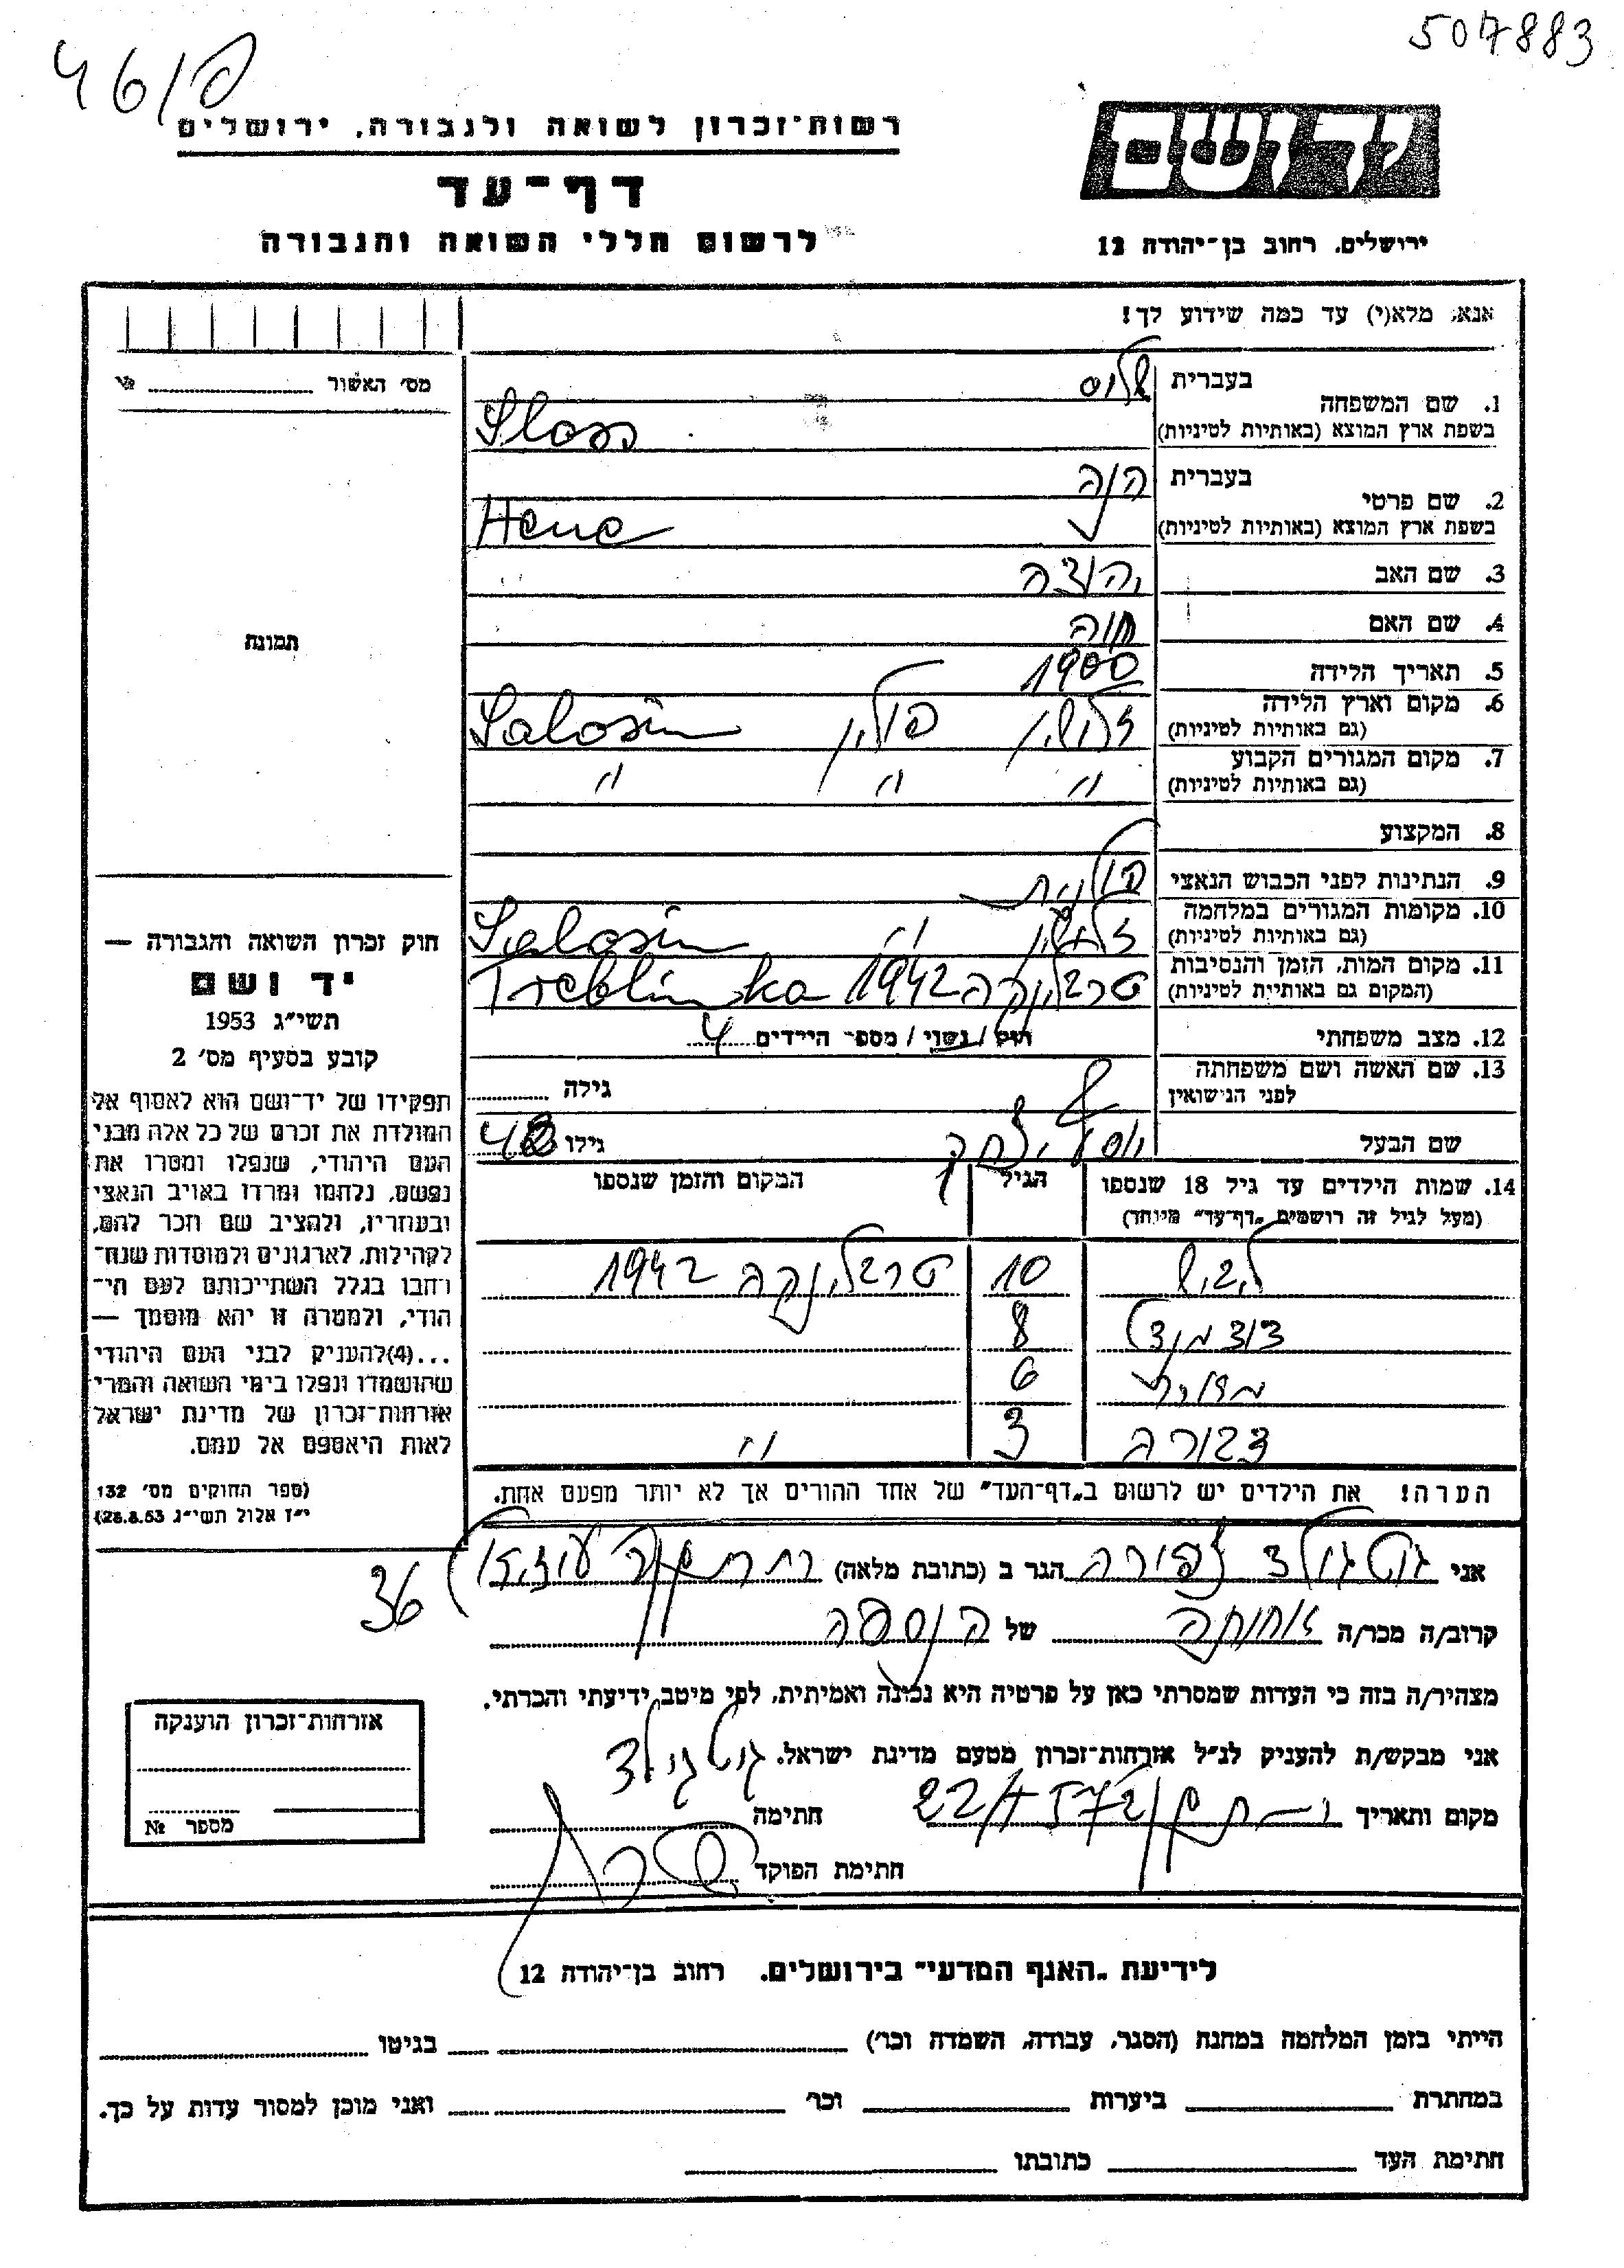 507883
461פ
יד ושם
רשות־זכרון לשואה ולגבורה, ירושלים
דף־עד
לרשום חללי השואה והגבורה
ירושלים, רחוב בן־יהודה 12
אנא, מלא(י) עד כמה שידוע לך!
מס׳ האשור № 
בעברית שלוס
1. שם המשפחה
בשפת ארץ המוצא (באותיות לטיניות) Sloss
בעברית הנה
2. שם פרטי
בשפת ארץ המוצא (באותיות לטיניות) Hene
3. שם האב יהודה
4. שם האם חוה
תמונה
5. תאריך הלידה 1900
6. מקום וארץ הלידה
(גם באותיות לטיניות) זלושין פולין Salosin
7. מקום המגורים הקבוע
(גם באותיות לטיניות) " " "
8. המקצוע
9. הנתינות לפני הכבוש הנאצי פולנית
10. מקומות המגורים במלחמה
(גם באותיות לטיניות) זלושין " Salosin
11. מקום המות, הזמן והנסיבות
(המקום גם באותיות לטיניות) טרבלינקה 1942 Treblinka
12. מצב משפחתי רווק / נשוי / מספר הילדים 4
13. שם האשה ושם משפחתה
לפני הנישואין גילה
שם הבעל יוסף יצחק גילו 42
14. שמות הילדים עד גיל 18 שנספו הגיל המקום והזמן שנספו
(מעל לגיל זה רושמים „דף־עד״ מיוחד)
ליביש 10 טרבלינקה 1942
8
6
דבורה 3 "
הערה! את הילדים יש לרשום ב„דף־העד״ של אחד ההורים אך לא יותר מפעם אחת.
חוק זכרון השואה והגבורה —
יד ושם
תשי״ג 1953
קובע בסעיף מס׳ 2
תפקידו של יד־ושם הוא לאסוף אל
המולדת את זכרם של כל אלה מבני
העם היהודי, שנפלו ומסרו את
נפשם, נלחמו ומרדו באויב הנאצי
ובעוזריו, ולהציב שם וזכר להם,
לקהילות, לארגונים ולמוסדות שנח־
רחבו בגלל השתייכותם לעם הי־
הודי, ולמטרה זו יהא מוסמך —
...(4) להעניק לבני העם היהודי
שהושמדו ונפלו בימי השואה והמרי
אזרחות־זכרון של מדינת ישראל
לאות היאספם אל עמם.
(ספר החוקים מס׳ 132
י״ז אלול תשי״ג 28.8.53)
אני גוטגולד צפורה הגר ב (כתובת מלאה) רמת גן עוזיאל
36
קרוב/ה מכר/ה אחותה של הנספה
מצהיר/ה בזה כי העדות שמסרתי כאן על פרטיה היא נכונה ואמיתית, לפי מיטב ידיעתי והכרתי.
אני מבקש/ת להעניק לנ״ל אזרחות־זכרון מטעם מדינת ישראל.
מקום ותאריך חתימה גוטגולד
חתימת הפוקד
אזרחות־זכרון הוענקה
מספר №
לידיעת „האגף המדעי״ בירושלים, רחוב בן־יהודה 12
הייתי בזמן המלחמה במחנה (הסגר, עבודה, השמדה וכר׳) בגיטו
במחתרת ביערות וכר׳ ואני מוכן למסור עדות על כך.
חתימת העד כתובתו